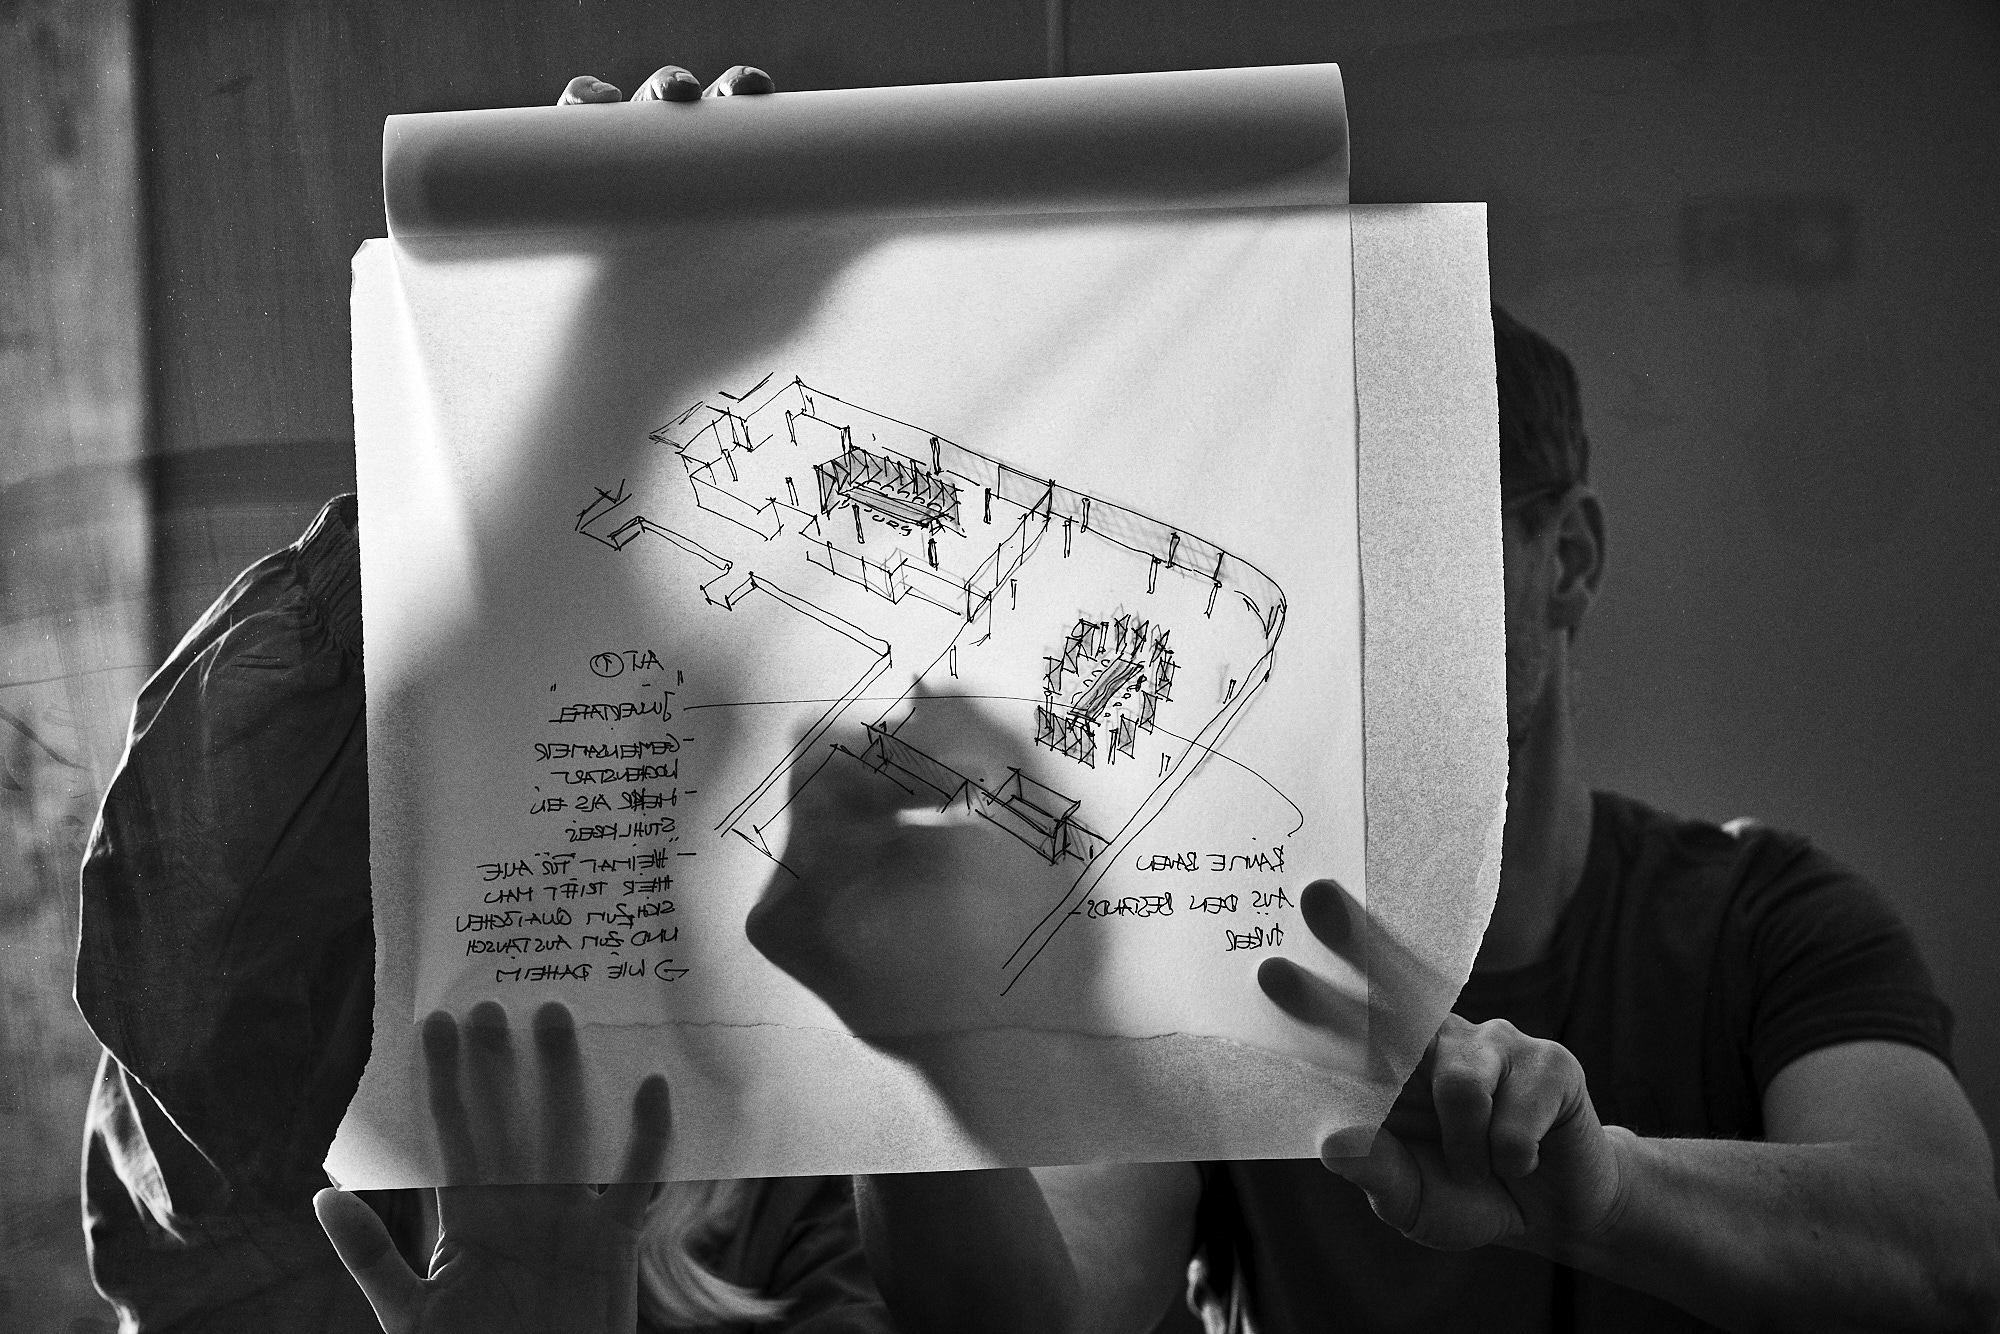 - GEMEINSAMER
WOCHENSTART
- MEHR ALS EIN
STUHLKREIS
- "HEIMAT" FÜR ALLE
HIER TRIFFT MAN
SICH ZUM QUATSCHEN
UND ZUM AUSTAUSCH
→ WIE DAHEIM
RÄUME BAUEN
AUS DEN BESTANDS-